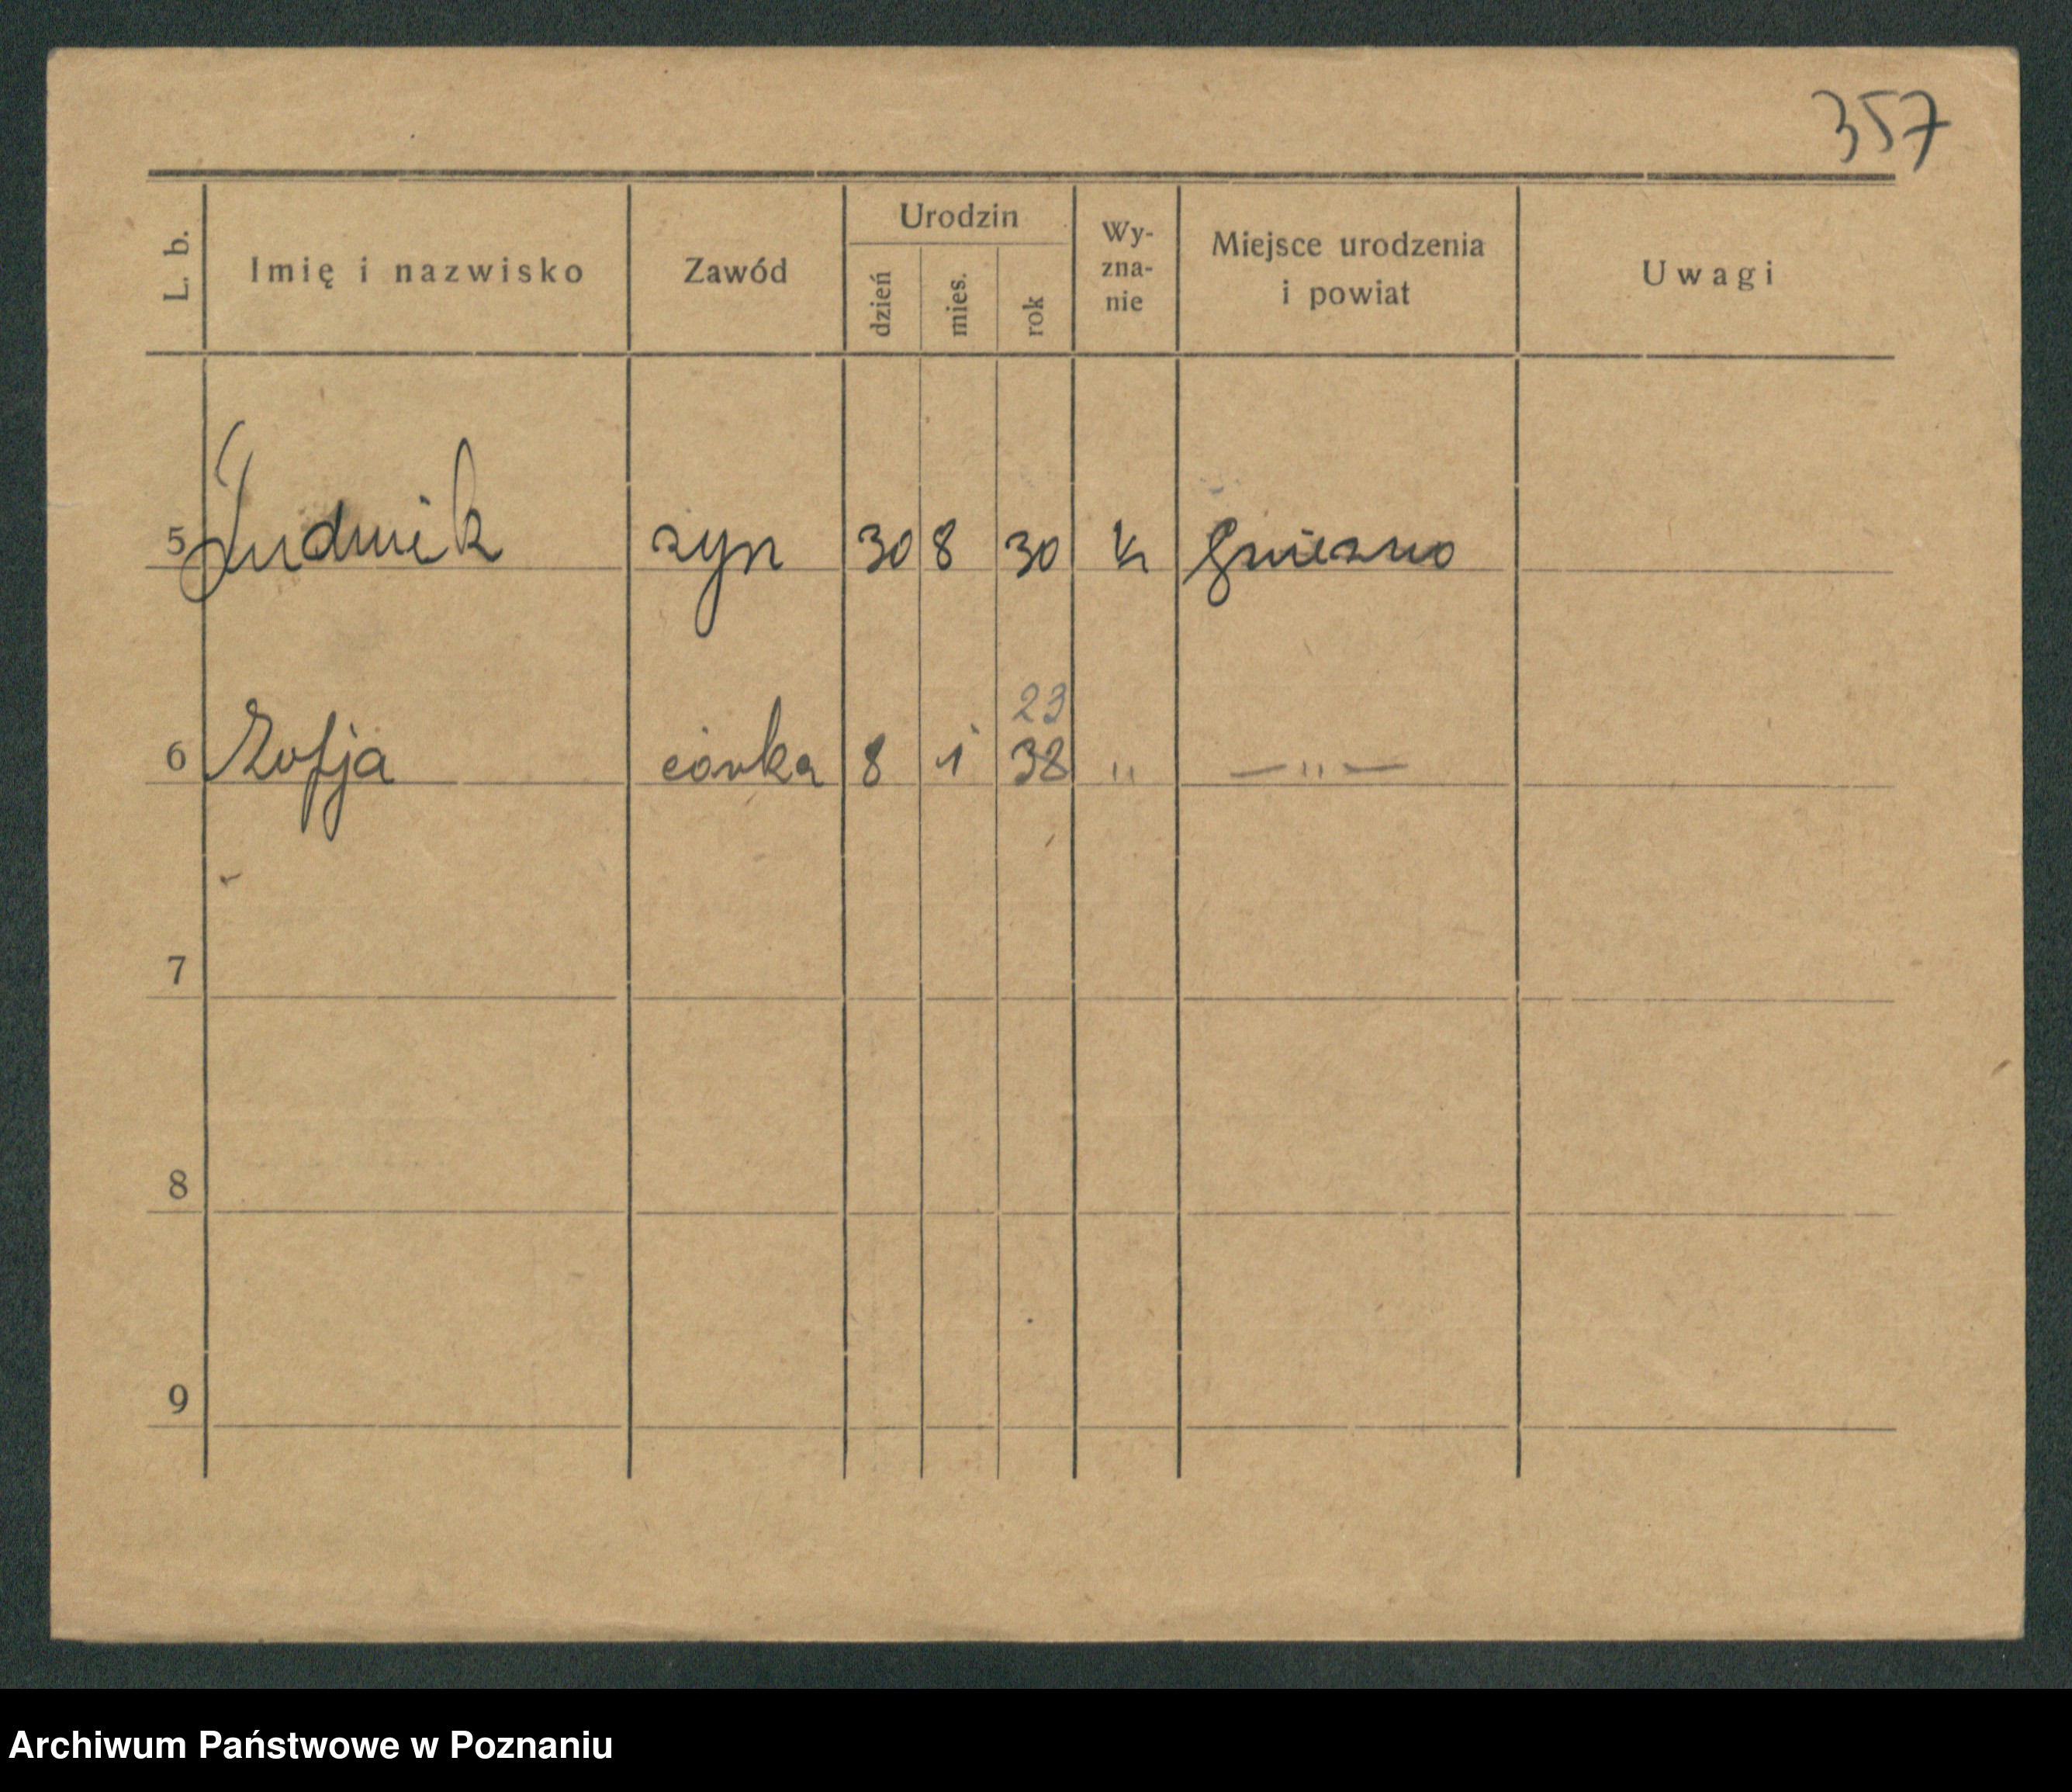 357
L. b. Imię i nazwisko Zawód Urodzin dzień mies. rok Wy-zna-nie Miejsce urodzenia i powiat Uwagi
5 Ludwik syn 30 8 30 k Gniezno
23
6 Zofja córka 8 1 38 " —"—
7
8
9
Archiwum Państwowe w Poznaniu